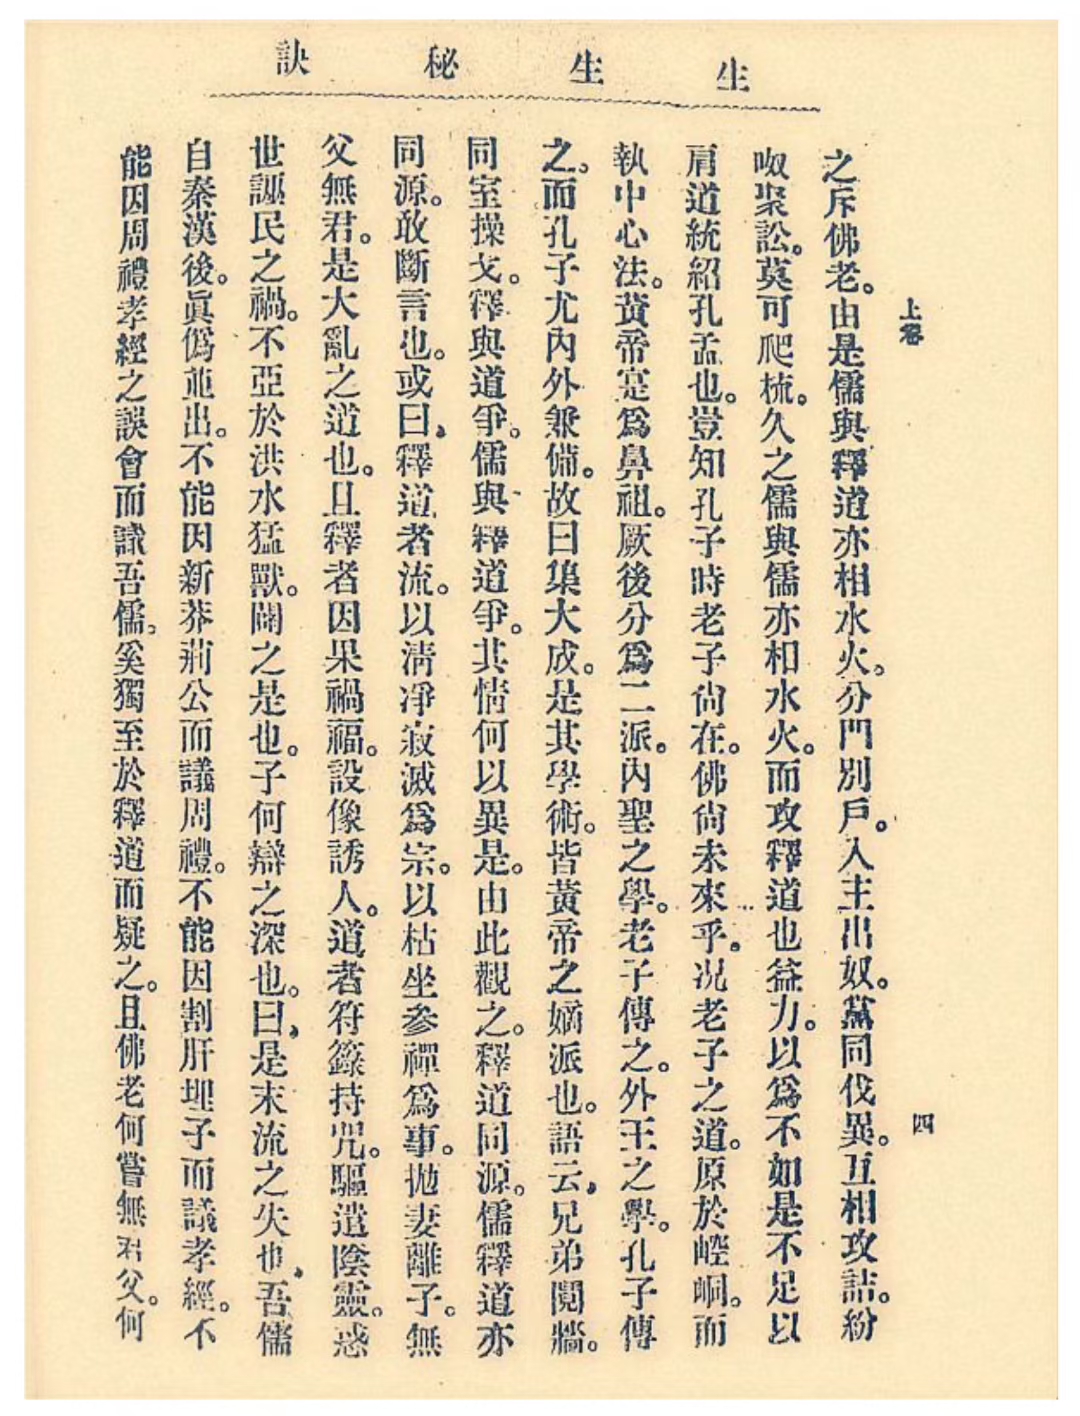 生生秘訣
上卷
四
之斥佛老。由是儒與釋道亦相水火。分門別戶。入主出奴。黨同伐異。互相攻詰。紛
呶聚訟。莫可爬梳。久之儒與儒亦相水火。而攻釋道也益力。以爲不如是不足以
肩道統紹孔孟也。豈知孔子時老子尙在。佛尙未來乎。况老子之道。原於崆峒。而
執中心法。黃帝寔爲鼻祖。厥後分爲二派。內聖之學。老子傳之。外王之學。孔子傳
之。而孔子尤內外兼備。故曰集大成。是其學術。皆黃帝之嫡派也。語云，兄弟鬩牆。
同室操戈。釋與道爭。儒與釋道爭。其情何以異是。由此觀之。釋道同源。儒釋道亦
同源。敢斷言也。或曰，釋道者流。以淸凈寂滅爲宗。以枯坐參禪爲事。拋妻離子。無
父無君。是大亂之道也。且釋者因果禍福。設像誘人。道者符籙持咒。驅遣陰靈。惑
世誣民之禍。不亞於洪水猛獸。闢之是也。子何辯之深也。曰，是末流之失也，吾儒
自秦漢後。眞僞並出。不能因新莽荊公而議周禮。不能因割肝埋子而議孝經。不
能因周禮孝經之誤會而議吾儒。奚獨至於釋道而疑之。且佛老何嘗無君父。何